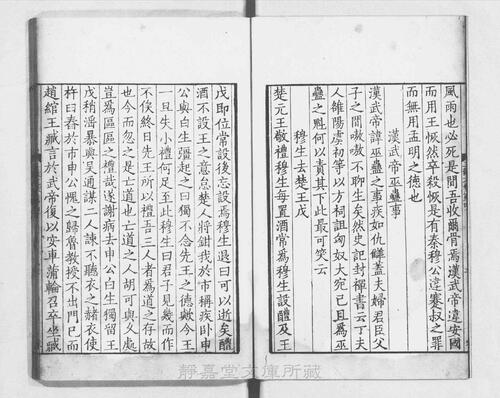 風雨也必死是間吾收爾骨焉漢武帝違安國
而用王恢然幸殺恢是有秦穆公違蹇叔之罪
而無用孟明之德也
漢武帝巫蠱事
漢武帝諱巫蠱之事疾如仇讎蓋夫婦君臣父
子之間嗷嗷不聊生矣然史記封禪書云丁夫
人雒陽虞初等以方祠詛匈奴大宛已且爲巫
蠱之魁何以責其下此最可笑云
穆生去楚王戊
楚元王敬禮穆生每置酒常爲穆生設醴及王
戊即位常設後忘設焉穆生退曰可以逝矣醴
酒不設王之意怠楚人將鉗我於市稱疾卧申
公與白生彊起之曰獨不念先王之德歟今王
一旦失小禮何足至此穆生曰君子見幾而作
不俟終日先王所以禮吾三人者爲道之存故
也今而忽之是亡道也亡道之人胡可與久處
豈爲區區之禮哉遂謝病去申公白生獨留王
戊稍淫暴與吳通謀二人諫不聽衣之赭衣使
杵臼舂於市申公愧之歸魯教授不出門已而
趙綰王臧言於武帝復以安車蒲輪召卒坐臧
靜嘉堂文庫所藏